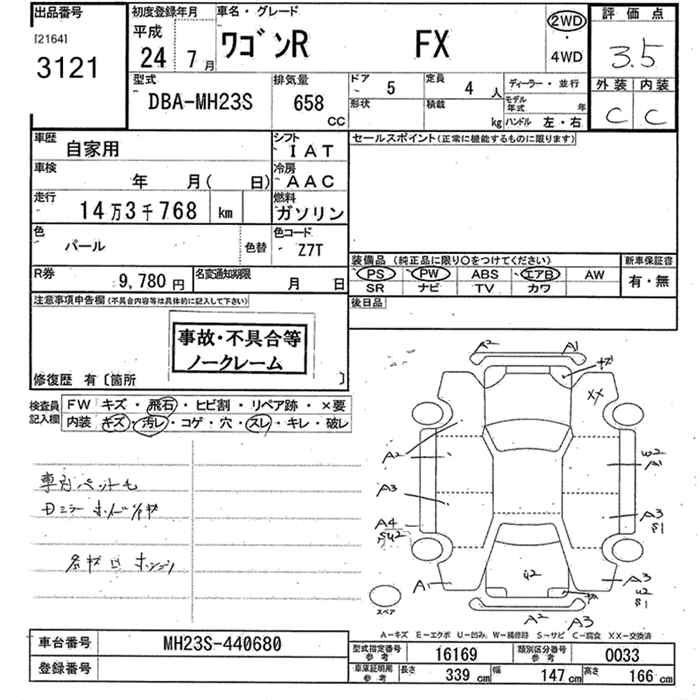 出品番号 初度登録年月 車名・グレード 評価点
[2164] 平成
3121 24 7月 ワゴンR FX 2WD・4WD 3.5
型式 排気量 ドア 定員 ディーラー・並行 外装 内装
DBA-MH23S 658 CC 5 4人 C C
形状 積載 kg モデル年式 年 ハンドル 左・右
車歴 自家用 シフト IAT セールスポイント(正常に機能するものに限ります)
車検 年 月( 日) 冷房 AAC
走行 14万3千768 km 燃料 ガソリン
色 パール 色替 色コード Z7T
装備品(純正品に限り○をつけてください) 新車保証書
R券 9,780円 名変通知期限 月 日
PS PW ABS エアB AW 有・無
SR ナビ TV カワ
注意事項申告欄(不具合内容等は具体的に記入して下さい) 後日品
事故・不具合等
ノークレーム
修復歴 有〔箇所 〕
検査員記入欄 FW キズ・飛石・ヒビ割・リペア跡・×要
内装 キズ・汚レ・コゲ・穴・スレ・キレ・破レ
A2 A1
XX
A2 W2
A1
A3 A3
S1
A4
SU2
A1 U2 A3
U2
S1
スペア A2 A3
A-キズ E-エクボ U-凹み W-補修跡 S-サビ C-腐食 XX-交換済
車台番号 MH23S-440680
登録番号
型式指定番号参考 16169 類別区分番号参考 0033
車庫証明用参考 長さ 339cm 幅 147cm 高さ 166cm